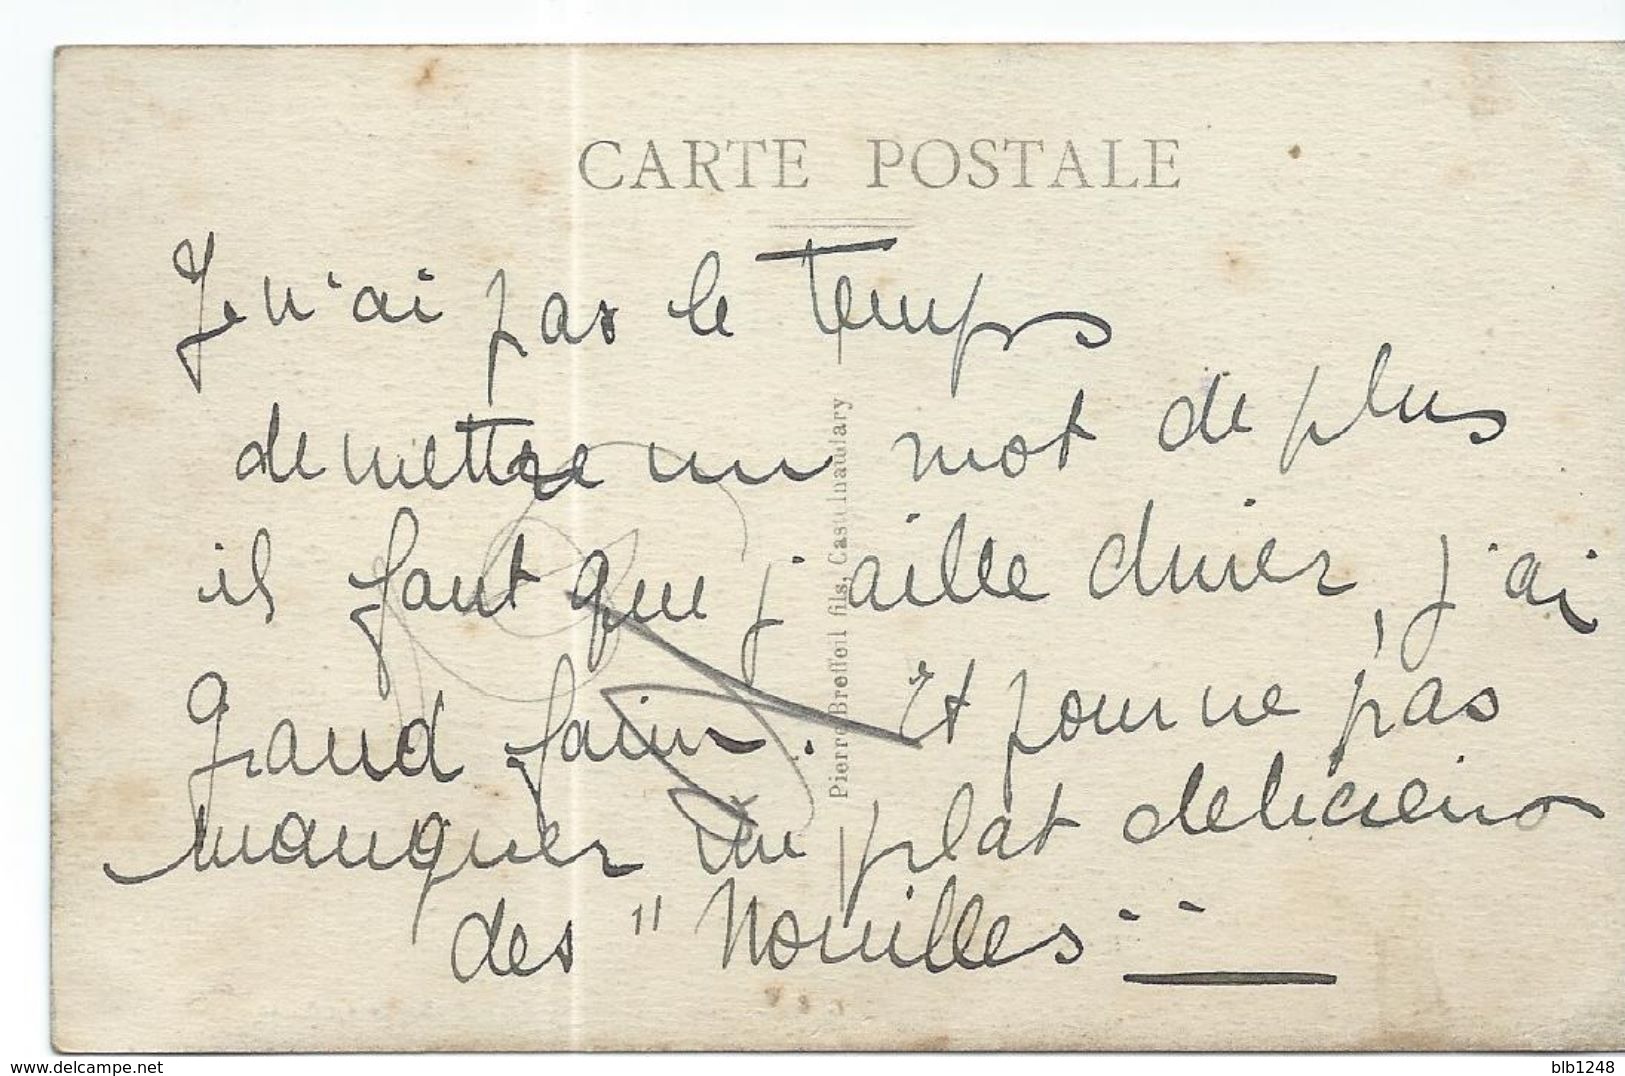 CARTE POSTALE
Je n'ai pas le Temps
de mettre un mot de plus
il faut que j'aille diner, j'ai
Grand faim. Et pour ne pas
manquer un plat delicieux
des "Nouilles"
Pierre Breffeil fils, Castelnaudary
www.delcampe.net
blb1248